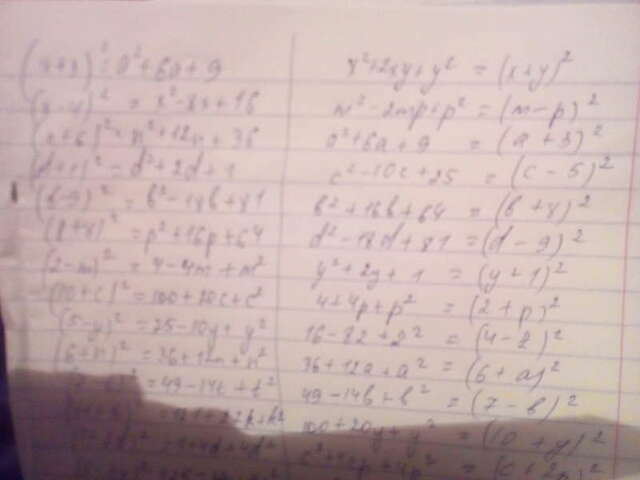 (a+3)² = a²+6a+9
(x-4)² = x²-8x+16
(n+6)² = n²+12n+36
(d+1)² = d²+2d+1
(b-9)² = b²-18b+81
(p+8)² = p²+16p+64
(2-m)² = 4-4m+m²
(10+c)² = 100+20c+c²
(5-y)² = 25-10y+y²
(6+n)² = 36+12n+n²
² = 49-14
x²+2xy+y² = (x+y)²
m²-2mp+p² = (m-p)²
a²+6a+9 = (a+3)²
c²-10c+25 = (c-5)²
b²+16b+64 = (b+8)²
d²-18d+81 = (d-9)²
y²+2y+1 = (y+1)²
4+4p+p² = (2+p)²
16-8z+z² = (4-z)²
36+12a+a² = (6+a)²
49-14b+b² = (7-b)²
100+20y+y² = (10+y)²
c²+4cp+4p² = (c+2p)²